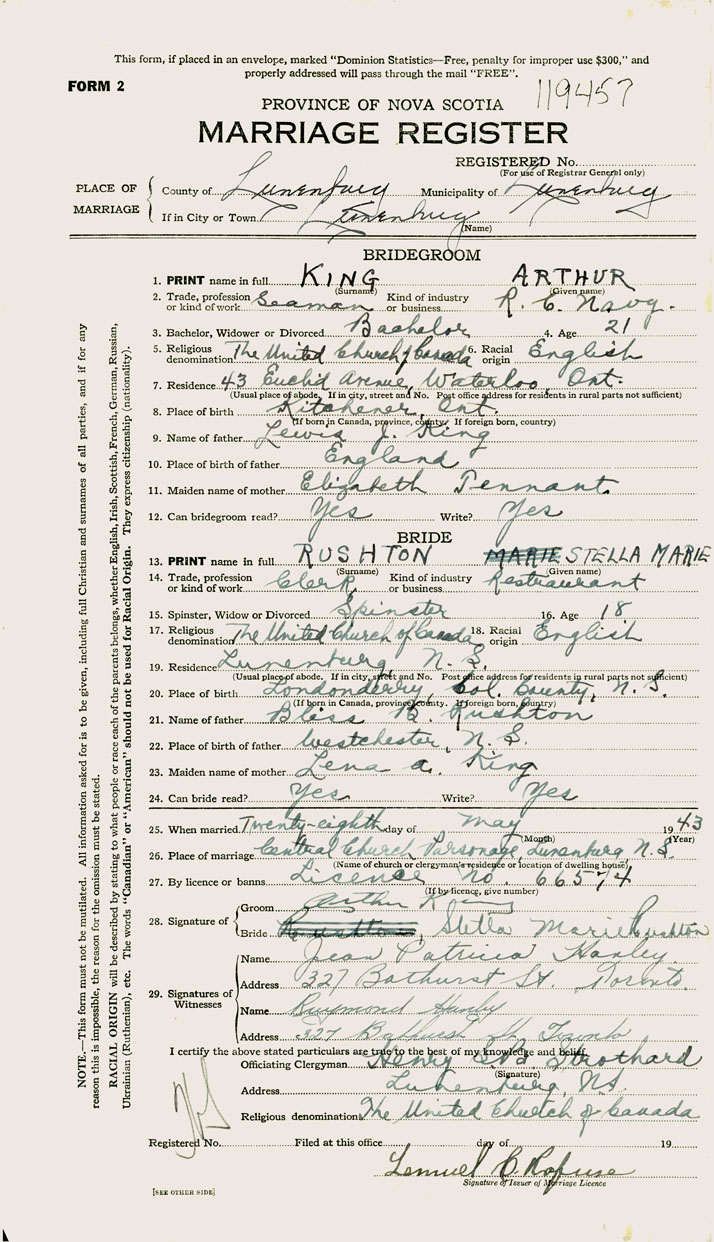 This form, if placed in an envelope, marked "Dominion Statistics—Free, penalty for improper use $300," and
properly addressed will pass through the mail "FREE".
FORM 2
119457
PROVINCE OF NOVA SCOTIA
MARRIAGE REGISTER
REGISTERED No.
(For use of Registrar General only)
PLACE OF MARRIAGE
County of Lunenburg Municipality of Lunenburg
If in City or Town Lunenburg
(Name)
BRIDEGROOM
1. PRINT name in full KING ARTHUR
(Surname) (Given name)
2. Trade, profession or kind of work Seaman Kind of industry or business R. C. Navy.
3. Bachelor, Widower or Divorced Bachelor 4. Age 21
5. Religious denomination The United Church of Canada 6. Racial origin English
7. Residence 43 Euclid Avenue, Waterloo, Ont.
(Usual place of abode. If in city, street and No. Post office address for residents in rural parts not sufficient)
8. Place of birth Kitchener, Ont.
(If born in Canada, province, county. If foreign born, country)
9. Name of father Lewis J. King
10. Place of birth of father England
11. Maiden name of mother Elizabeth Tennant
12. Can bridegroom read? Yes Write? Yes
BRIDE
13. PRINT name in full RUSHTON MARIE STELLA MARIE
(Surname) (Given name)
14. Trade, profession or kind of work Clerk Kind of industry or business Restraurant
15. Spinster, Widow or Divorced Spinster 16. Age 18
17. Religious denomination The United Church of Canada 18. Racial origin English
19. Residence Lunenburg, N. S.
(Usual place of abode. If in city, street and No. Post office address for residents in rural parts not sufficient)
20. Place of birth Londonderry, Col. County, N. S.
(If born in Canada, province, county. If foreign born, country)
21. Name of father Bliss B. Rushton
22. Place of birth of father Westchester, N. S.
23. Maiden name of mother Lena A. King
24. Can bride read? Yes Write? Yes
25. When married Twenty-eighth day of May 1943
(Month) (Year)
26. Place of marriage Central Church Parsonage, Lunenburg N. S.
(Name of church or clergyman's residence or location of dwelling house)
27. By licence or banns Licence no. 66574
(If by licence, give number)
28. Signature of
Groom Arthur King
Bride Stella Marie Rushton
29. Signatures of Witnesses
Name Jean Patricia Hanley
Address 327 Bathurst St. Toronto
Name Raymond Hanley
Address 327 Bathurst St. Toronto
I certify the above stated particulars are true to the best of my knowledge and belief.
Officiating Clergyman Henry Strothard
(Signature)
Address Lunenburg, N.S.
Religious denomination The United Church of Canada
Registered No. Filed at this office day of 19
Lemuel E. Rofuse
Signature of Issuer of Marriage Licence
[SEE OTHER SIDE]
NOTE.—This form must not be mutilated. All information asked for is to be given, including full Christian and surnames of all parties, and if for any
reason this is impossible, the reason for the omission must be stated.
RACIAL ORIGIN will be described by stating to what people or race each of the parents belongs, whether English, Irish, Scottish, French, German, Russian,
Ukrainian (Ruthenian), etc. The words "Canadian" or "American" should not be used for Racial Origin. They express citizenship (nationality).